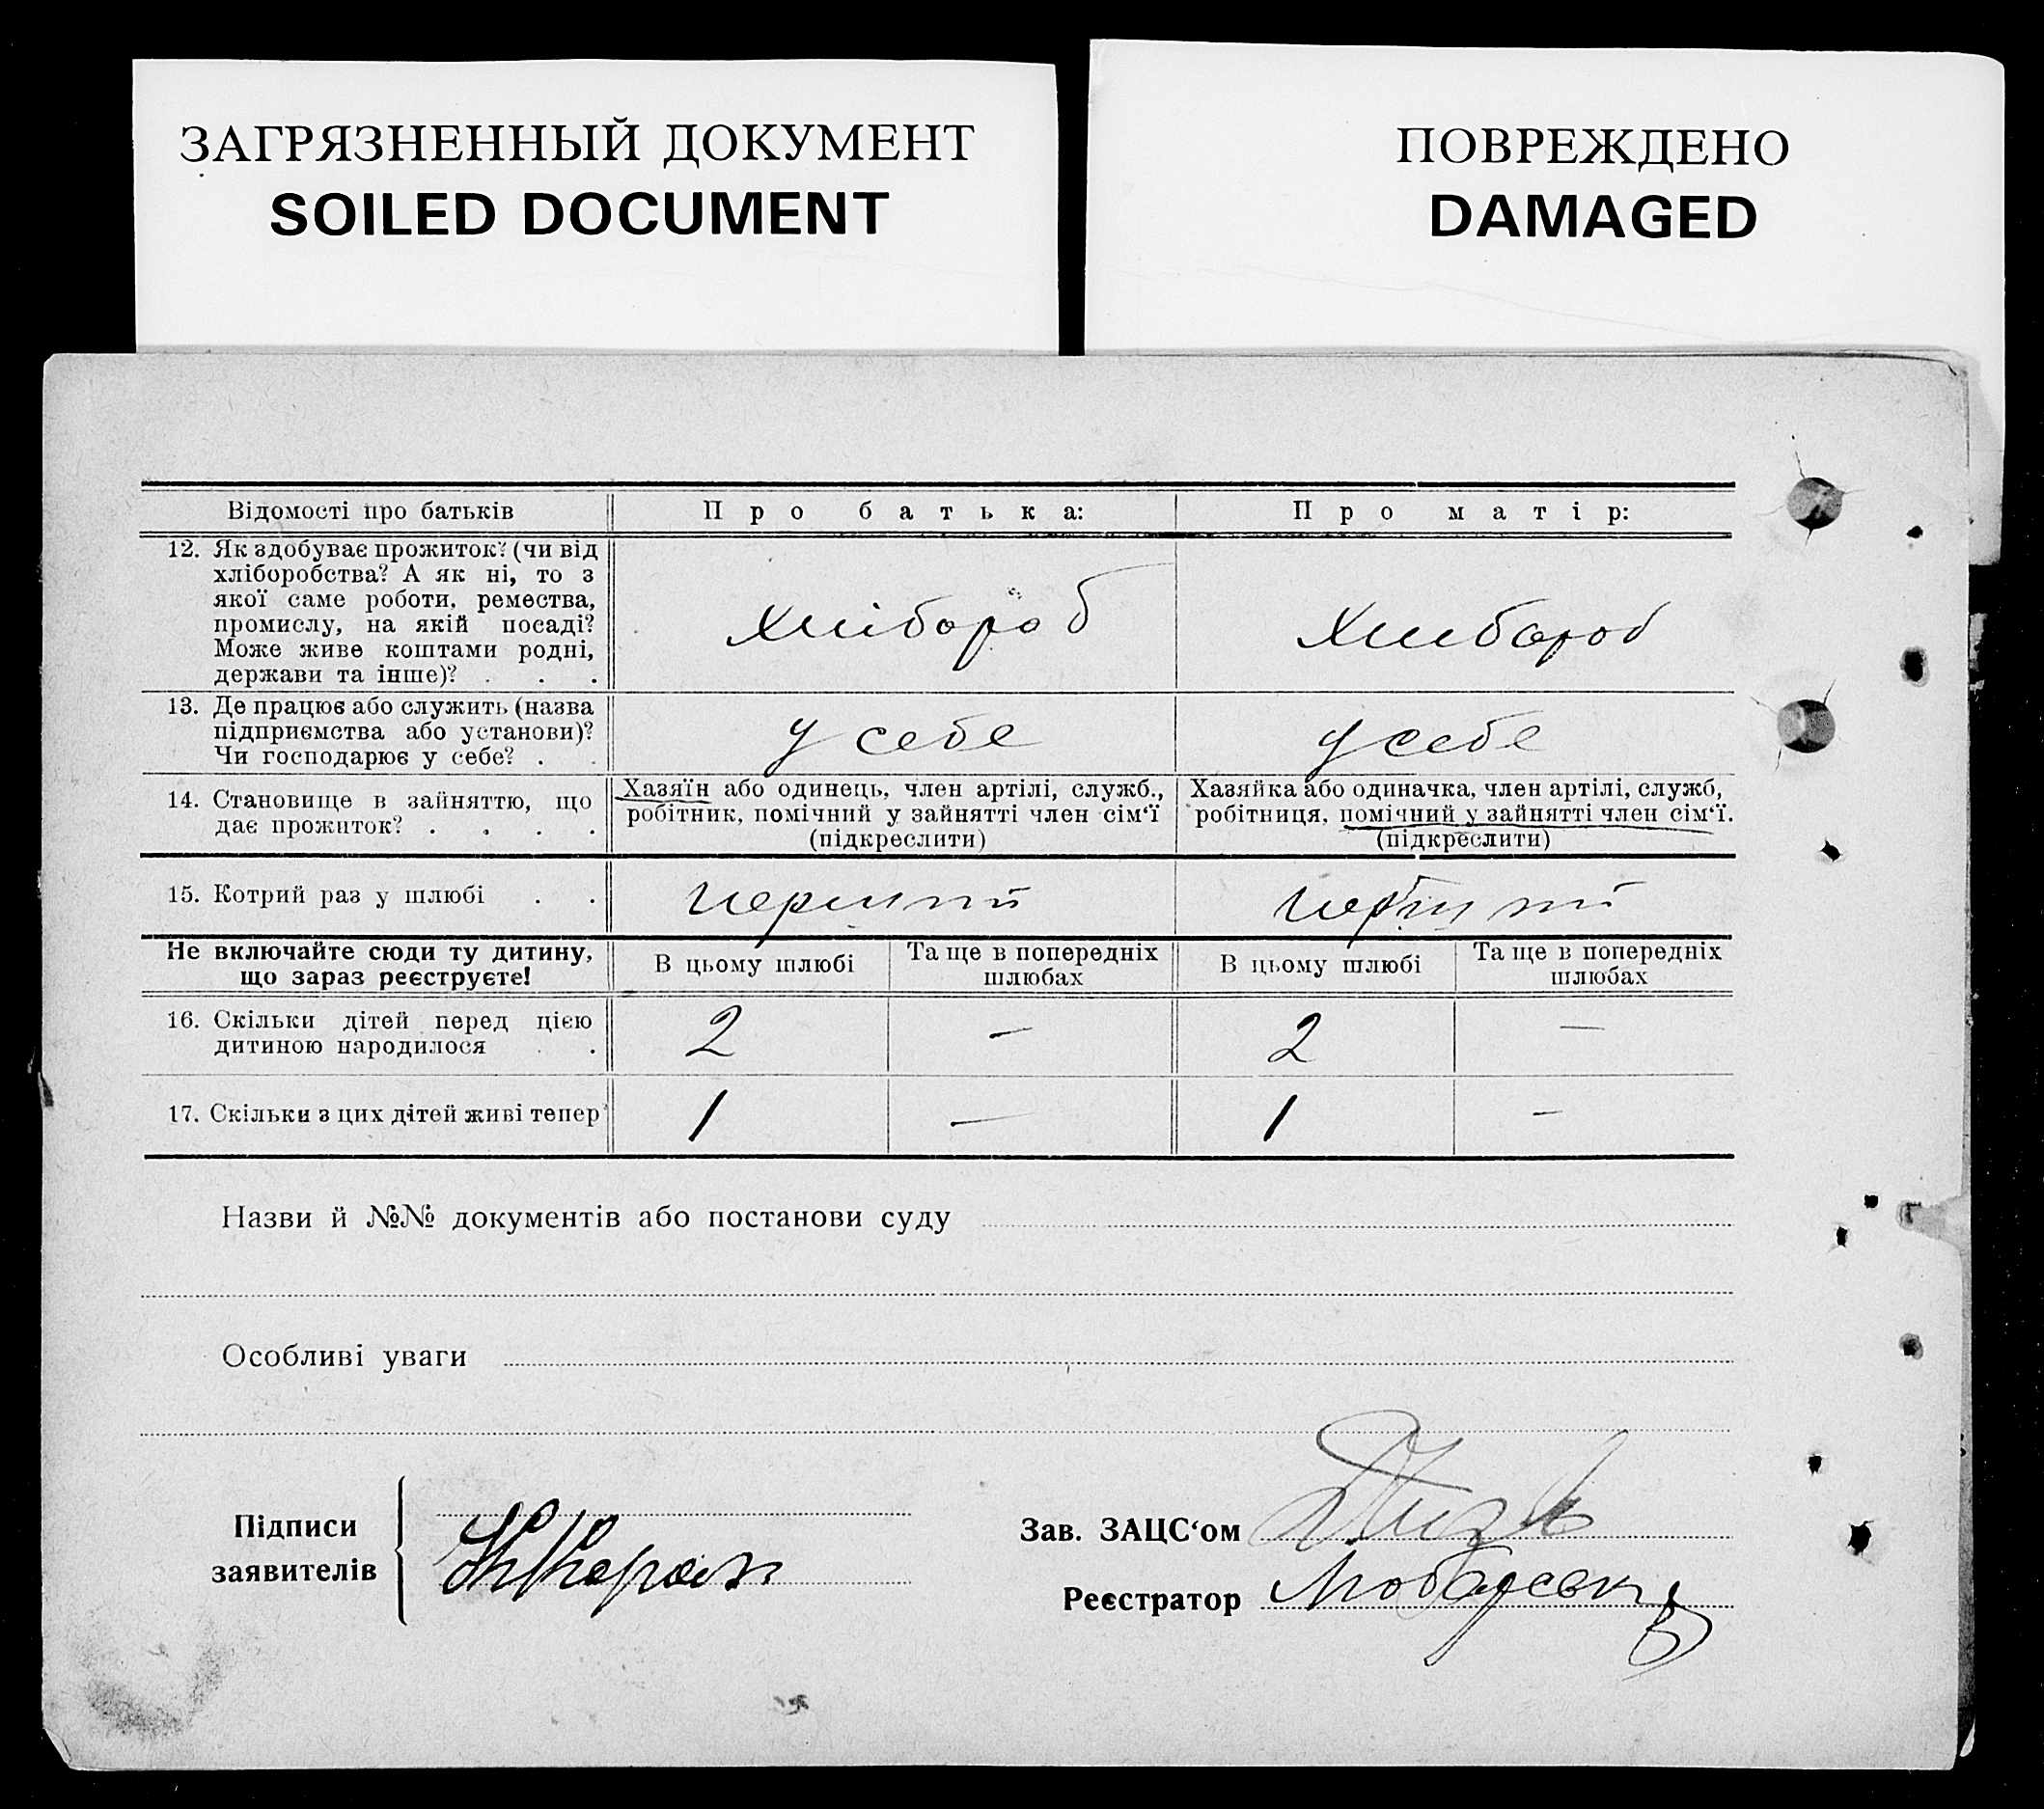 ЗАГРЯЗНЕННЫЙ ДОКУМЕНТ
SOILED DOCUMENT
ПОВРЕЖДЕНО
DAMAGED
Відомості про батьків
Про батька:
Про матір:
12. Як здобуває прожиток? (чи від
хліборобства? А як ні, то з
якої саме роботи, ремества,
промислу, на якій посаді?
Може живе коштами родні,
держави та інше)? . . .
Хлібороб
Хлибороб
13. Де працює або служить (назва
підприємства або установи)?
Чи господарює у себе? . .
у себе
у себе
14. Становище в зайняттю, що
дає прожиток? . . . .
Хазяїн або одинець, член артілі, служб.,
робітник, помічний у зайнятті член сім‘ї
(підкреслити)
Хазяйка або одиначка, член артілі, служб,
робітниця, помічний у зайнятті член сім‘ї.
(підкреслити)
15. Котрий раз у шлюбі . .
перший
перший
Не включайте сюди ту дитину,
що зараз реєструєте!
В цьому шлюбі
Та ще в попередніх
шлюбах
В цьому шлюбі
Та ще в попередніх
шлюбах
16. Скільки дітей перед цією
дитиною народилося . .
2
—
2
—
17. Скільки з цих дітей живі тепер
1
—
1
—
Назви й №№ документів або постанови суду
Особливі уваги
Підписи
заявителів
Зав. ЗАЦС‘ом
Реєстратор